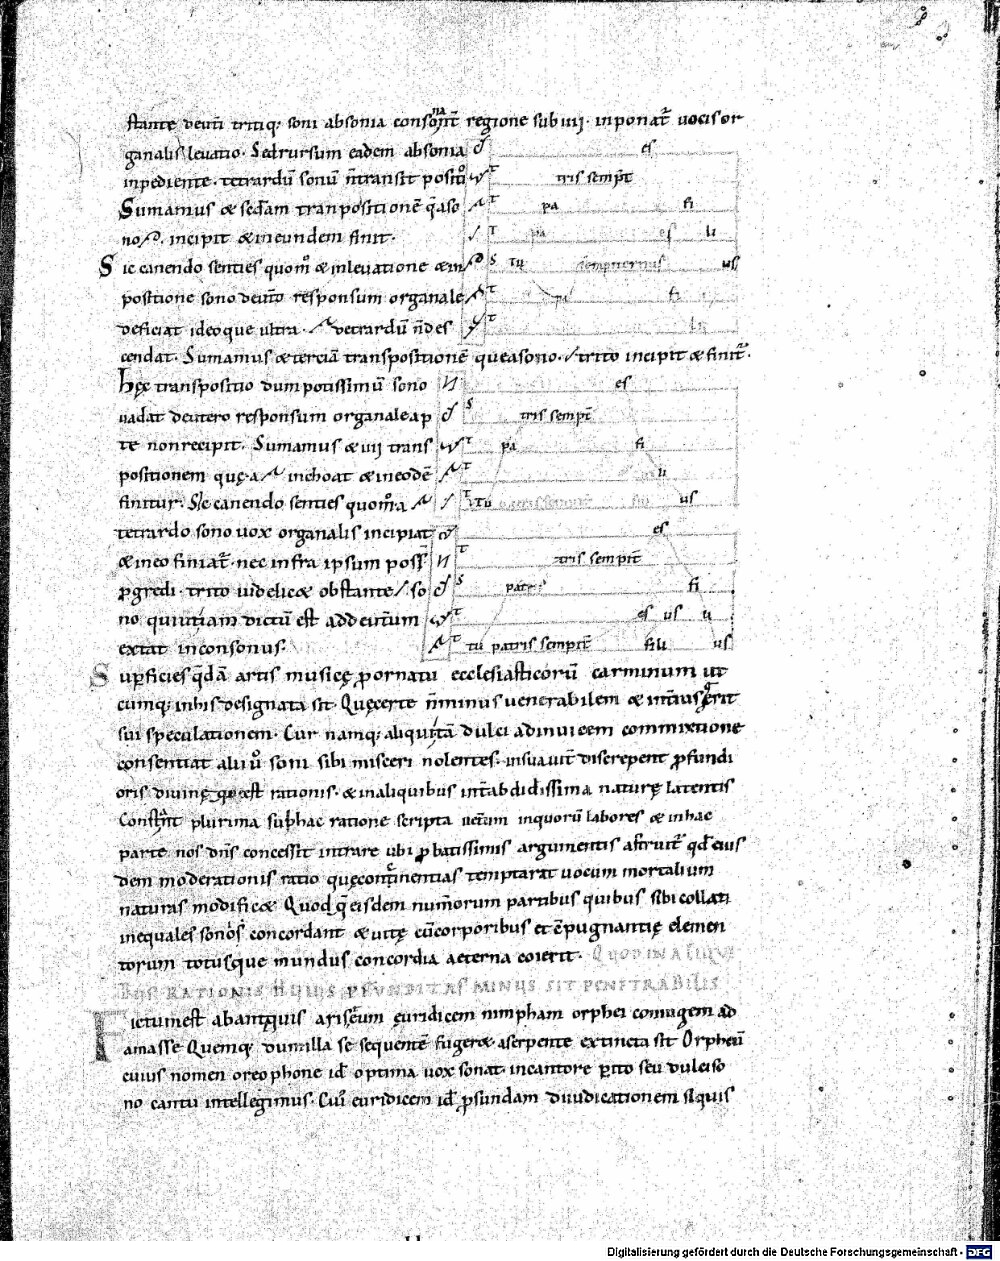 stante deut̄ tritiq; soni absonia consonāt̄ regione sub uij · inponat̄ uocis or
ganalis leuatio · Sed rursum eadem absonia
inpediente · tetrardū sonū n̄ transit positio
Sumamus & sedam tranpositionē q̄ a so
no · incipit & in eundem finit ·
es
tris semp̄t
pa fi
pa es li
Tu sempiternus us
pa fi
Sic canendo senties quom̊ & in leuatione & in
positione sono deut̄o responsum organale
deficiat ideoque ultra · tetrardū n̄ des
cendat · Sumamus & terciā transpositionē que a sono · trito incipit & finit̄ ·
Hęc transpositio dum potissimū sono
uadat deutero responsum organale ap
te non recipit · Sumamus & iiij trans
positionem quę · a inchoat & in eodē
finitur · Sic canendo senties quom̊ a
es
tris semp̄t
pa fi
li
Tu us
tetrardo sono uox organalis incipiat
& in eo finiat̄ · nec infra ipsum poss̄
p̄gredi · trito uidelic& obstante so
no qui utiam dictū est addeut̄um
extat inconsonus ·
es
tris sempit̄
patr fi
es us li
tu patris sempit̄ fili us
Sup̄ficies q̄dā artis musicę p̄ ornatu ecclesiasticorū carminum ut
cumq; in his designata sit · Quę certe n̄ minus uenerabilem & int̄aus q̄rit
sui speculationem · Cur namq; aliqui tā dulci ad inuicem commixtione
consentiant alii ū soni sibi misceri nolentes · insuauit̄ discrepent p̄fundi
oris diuinę est rationis · & in aliquibus int̄ abdidissima naturę latentis
Constāt plurima sup̄ hac ratione scripta uet̄um in quorū labores & in hac
parte nos dn̄s concessit intrare ubi p̄batissimis argumentis astruit̄ qd̄ eius
dem moderationis ratio quę continentias temptarat uocum mortalium
naturas modific& Quod q̄ eisdem num̄orum partibus quibus sibi collati
inequales sonos concordant & uitę cū corporibus et ē pugnantię elemen
torum totusque mundus concordia aeterna coierit · QUOD IN ALIQUI
BUS RATIONIS HUIUS P̄FUNDITAS MINUS SIT PENETRABILIS
Fictum est ab antiquis arisēum euridicem nimpham orphei coniugem ad
amasse Quemq; dum illa se sequentē fuger& a serpente extincta sit Orpheū
cuius nomen oreo phone id optima uox sonat · in cantore p̄ito seu dulciso
no cantu intellegimus · Cuī euridicem id p̄fundam diiudicationem siquis
Digitalisierung gefördert durch die Deutsche Forschungsgemeinschaft · DFG